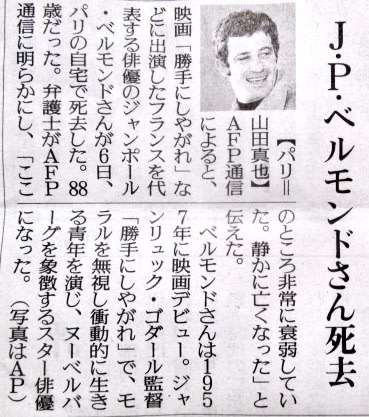 J・P・ベルモンドさん死去
【パリ=
山田真也】
AFP通信
によると、
映画「勝手にしやがれ」な
どに出演したフランスを代
表する俳優のジャンポール
・ベルモンドさんが6日、
パリの自宅で死去した。88
歳だった。弁護士がAFP
通信に明らかにし、「ここ
のところ非常に衰弱してい
た。静かに亡くなった」と
伝えた。
ベルモンドさんは195
7年に映画デビュー。ジャ
ンリュック・ゴダール監督
「勝手にしやがれ」で、モ
ラルを無視し衝動的に生き
る青年を演じ、ヌーベルバ
ーグを象徴するスター俳優
になった。（写真はAP）